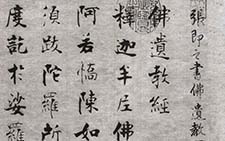 張即之書佛遺教
佛遺教經
釋迦牟尼佛
阿若憍陳如
須跋陀羅所
度訖於娑羅